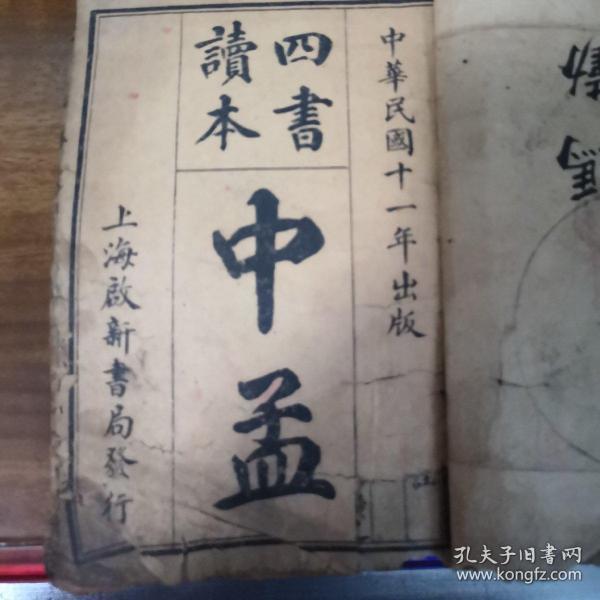 中華民國十一年出版
四書
讀本
中孟
上海啟新書局發行
孔夫子旧書网
www.kongfz.com